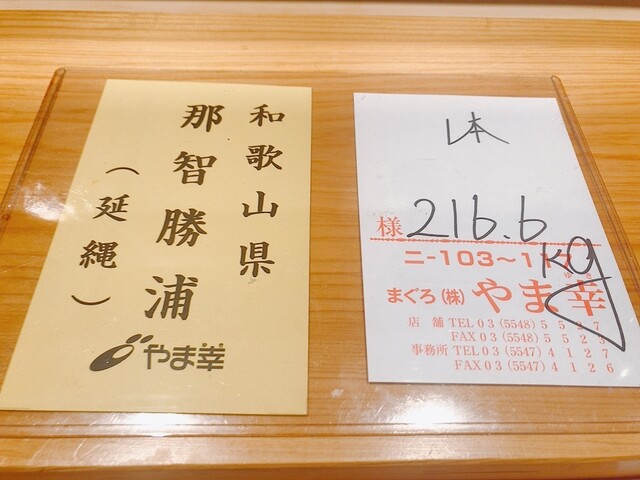 和歌山県
那智勝浦
（延縄）
やま幸
本
様 216.6
kg
ニ-103～117
まぐろ(株) やま幸
ゆき
店舗 TEL 03 (5548) 5527
FAX 03 (5548) 5523
事務所 TEL 03 (5547) 4127
FAX 03 (5547) 4126